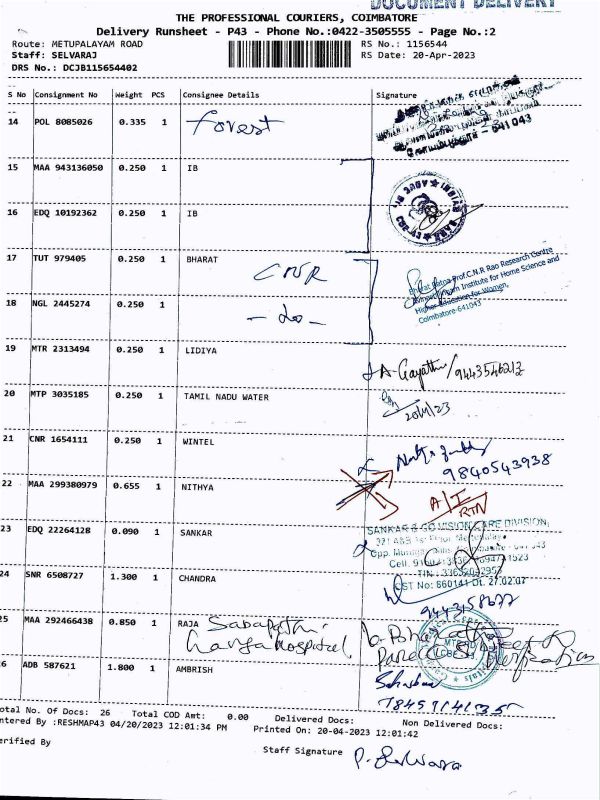 DOCUMENT DELIVERY
THE PROFESSIONAL COURIERS, COIMBATORE
Delivery Runsheet - P43 - Phone No.:0422-3505555 - Page No.:2
Route: METUPALAYAM ROAD
RS No.: 1156544
Staff: SELVARAJ
RS Date: 20-Apr-2023
DRS No.: DCJB115654402
S No Consignment No Weight PCS Consignee Details Signature
14 POL 8085026 0.335 1 Forest
641043
15 MAA 943136050 0.250 1 IB
16 EDQ 10192362 0.250 1 IB
17 TUT 979405 0.250 1 BHARAT
CNR
Bharat Ratna Prof.C.N.R Rao Research Centre
Institute for Home Science and
Higher Education for Women,
Coimbatore-641043
18 NGL 2445274 0.250 1
- do -
19 MTR 2313494 0.250 1 LIDIYA
A. Gayathri/9443546213
20 MTP 3035185 0.250 1 TAMIL NADU WATER
20/4/23
21 CNR 1654111 0.250 1 WINTEL
9840543938
22 MAA 299380979 0.655 1 NITHYA
A/I
RTN
23 EDQ 22264128 0.090 1 SANKAR
SANKAR & CO VISION CARE DIVISION,
CST No: 860141 Dt. 27.02.07
24 SNR 6508727 1.300 1 CHANDRA
9443758677
25 MAA 292466438 0.850 1 RAJA Sabapathi
Ganga Hospital
26 ADB 587621 1.800 1 AMBRISH
Total No. Of Docs: 26 Total COD Amt: 0.00 Delivered Docs: Non Delivered Docs:
Entered By :RESHMAP43 04/20/2023 12:01:34 PM Printed On: 20-04-2023 12:01:42
Verified By
Staff Signature P. Selvaraj